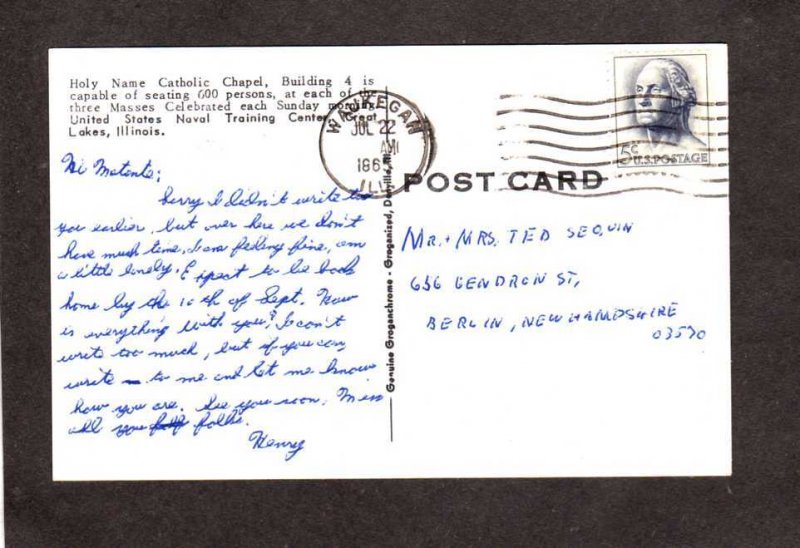 Holy Name Catholic Chapel, Building 4 is
capable of seating 600 persons, at each of the
three Masses Celebrated each Sunday morning
United States Naval Training Center, Great
Lakes, Illinois.
WAUKEGAN
JUL 22
AM
ILL
5¢
U.S. POSTAGE
POST CARD
Genuine Groganchrome - Groganized, Danville, Ill.
Hi Matante;
Sorry I didn't write to
you earlier, but over here we don't
have much time. I am feeling fine, am
a little lonely. Expect to be back
home by the 10th of Sept. How
is everything with you? I can't
write too much, but if you can,
write to me and let me know
how you are. See you soon. Miss
all you folks.
Henry
MR. + MRS. TED SEQUIN
656 GENDRON ST,
BERLIN, NEW HAMPSHIRE
03570